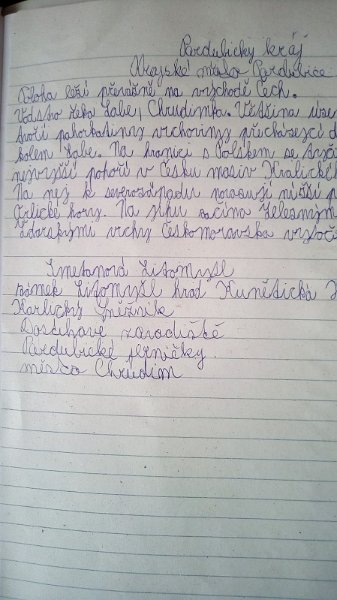 Pardubický kraj
Krajské město Pardubice
Poloha leží převážně na východě Čech.
řeka Labe, Chrudimka. Většina úze
tvoří pahorkatiny vrchoviny přecházející d
kolem Labe. Na hranici s Polskem se
nejvyšší pohoří v Česku masiv Kralické
Na něž k severozápadu navazují nižší p
Orlické hory. Na jihu začíná Železným
Žďárskými vrchy Českomoravská vrcho
Smetanova Litomyšl
zámek Litomyšl hrad Kunětická H
Králický Sněžník
zavadiště
Pardubické perníčky
město Chrudim